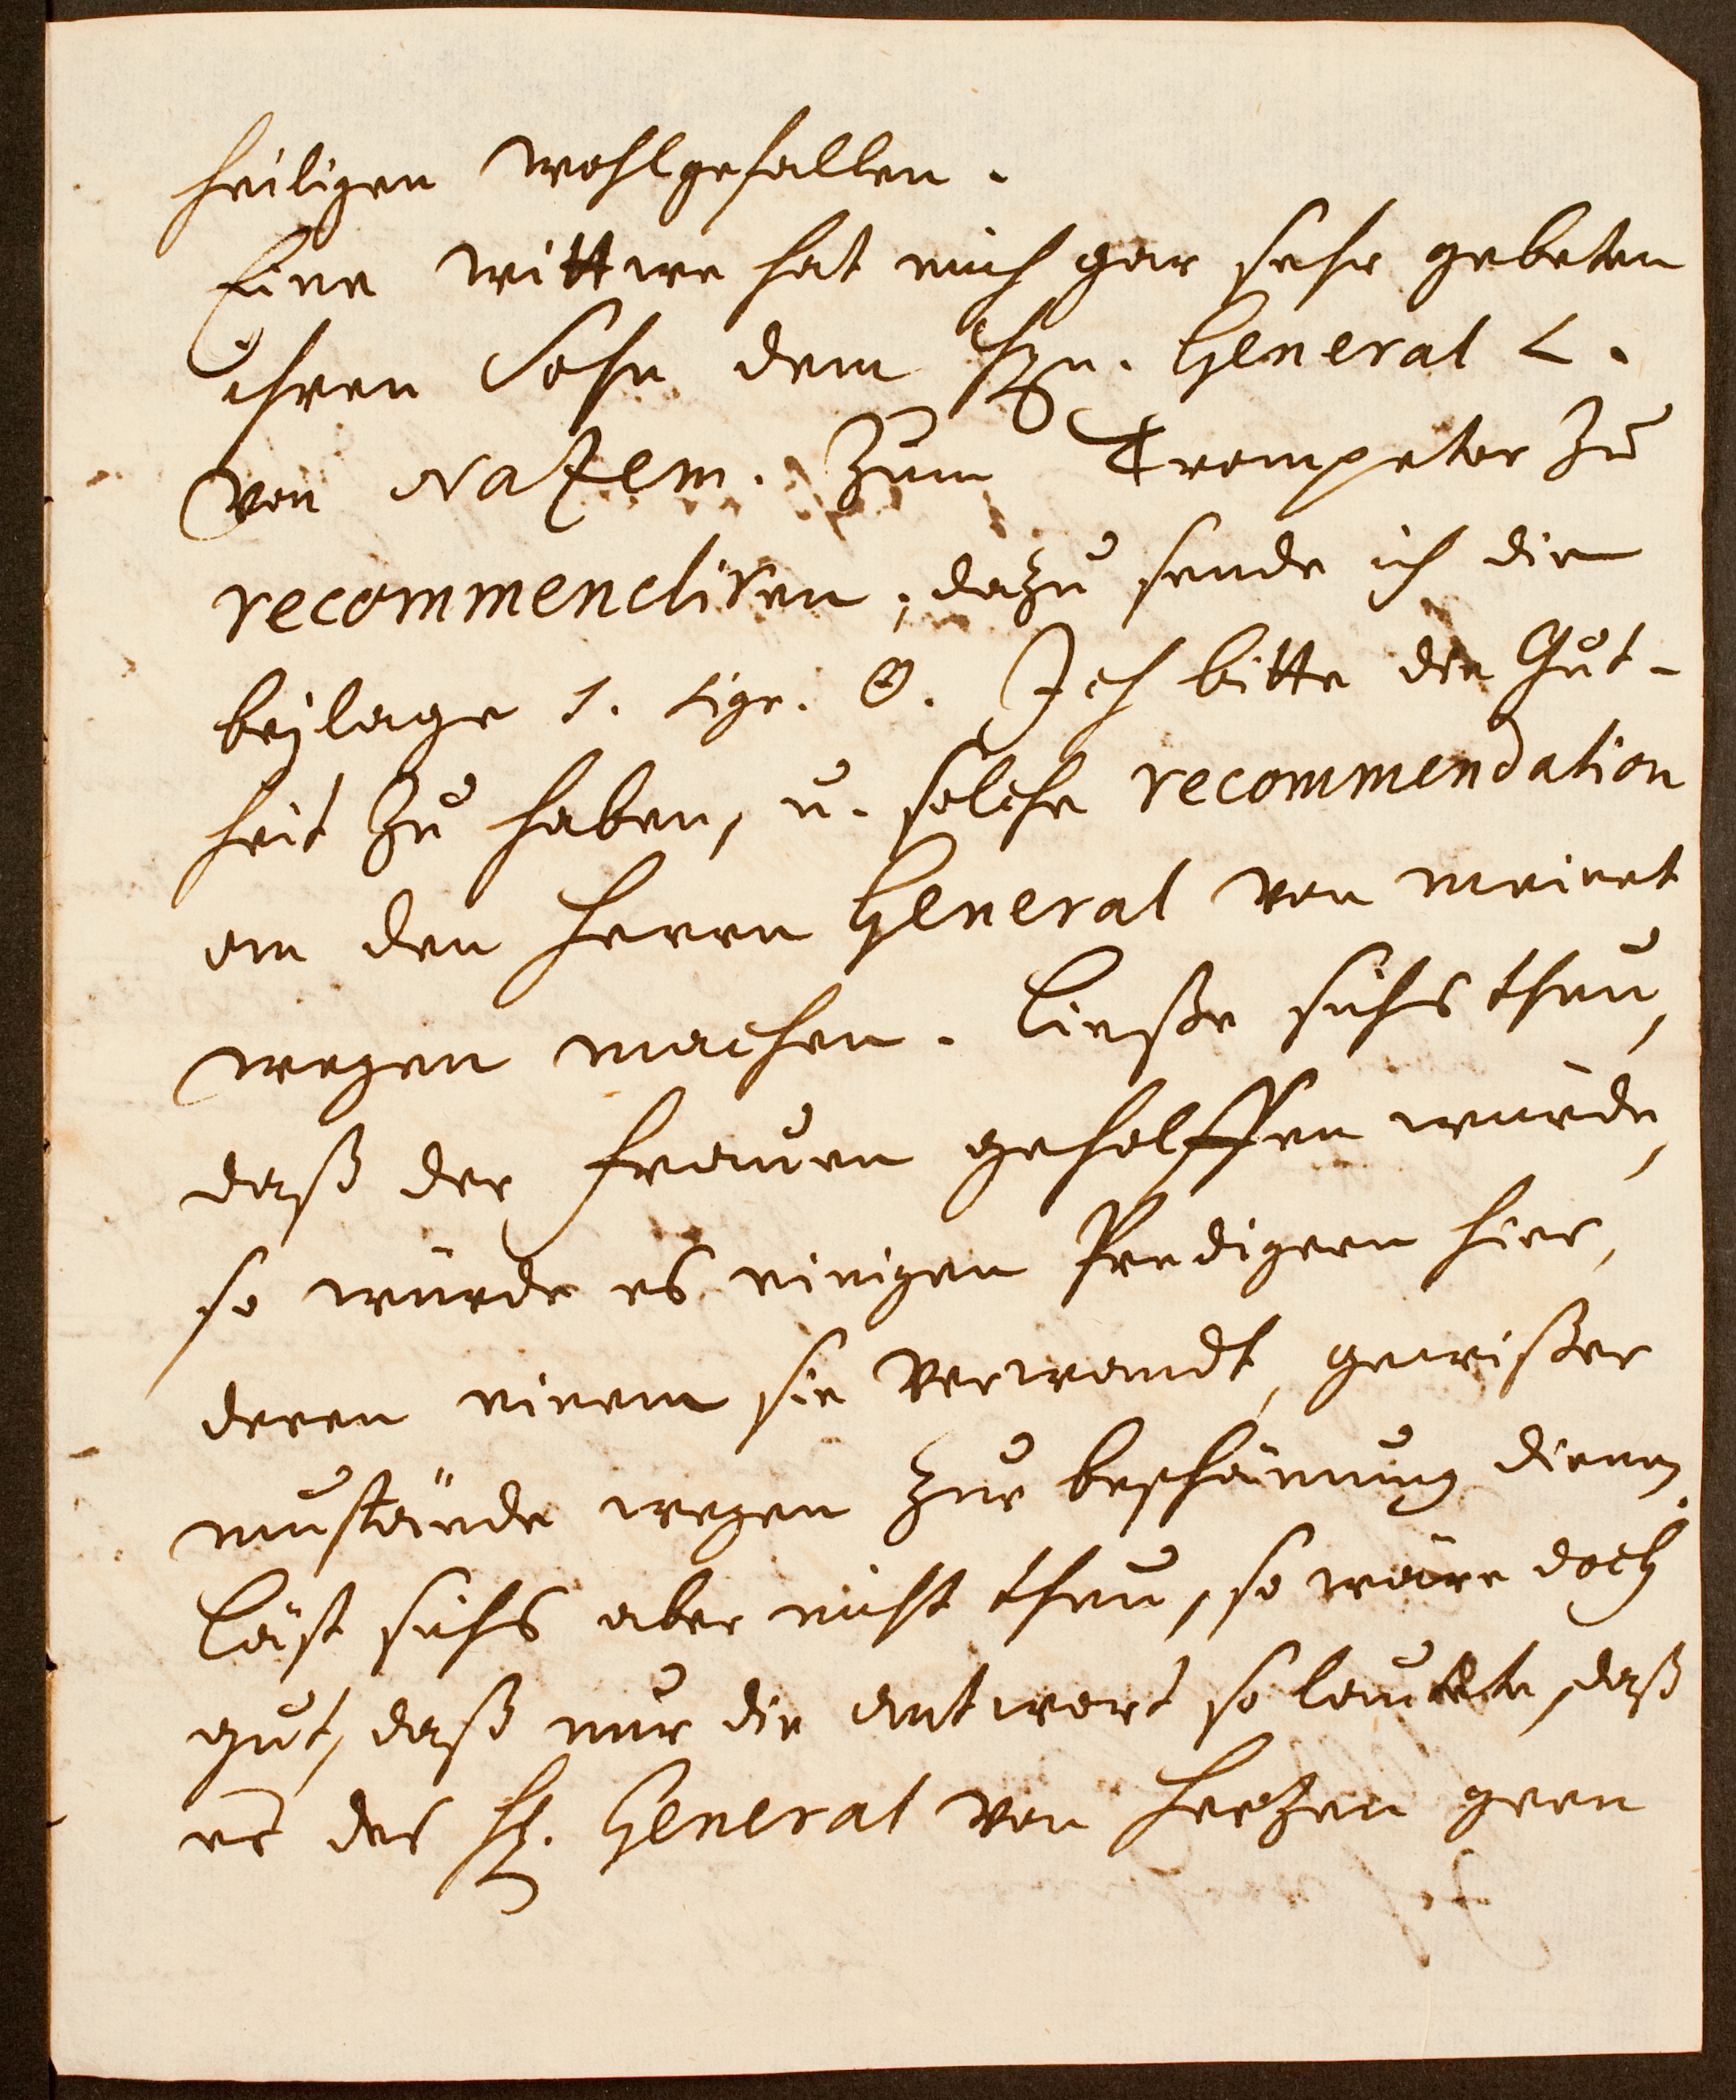 heiligen wohlgefallen.
Eine wittwe hat mich gar sehr gebeten
ihren Sohn dem Hrn. General L.
von Nazem. zum Trompeter zu
recommendiren, dazu sende ich die
beylage s. sign. O. Ich bitte die Güt-
heit zu haben, u. solche recommendation
an den Herrn General von meinet
wegen machen. Ließe sichs thun,
daß der frauen geholffen würde,
so würde es einigen Predigern hier,
deren einem sie verwandt, gewißer
umstände wegen zur beschämung dienen.
Läst sichs aber nicht thun, so wäre doch
gut, daß nur die antwort so lautete, daß
es der H. General von Herzen gern